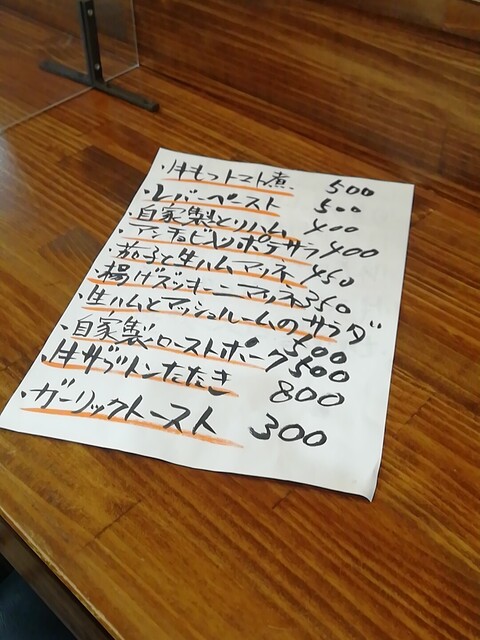 ・牛もつトマト煮 500
・レバーペースト 500
・自家製とりハム 400
・アンチョビ入りポテサラ 400
・茄子と生ハムマリネ 450
・揚げズッキーニマリネ 350
・生ハムとマッシュルームのサラダ 500
・自家製ローストポーク 500
・牛サブトンたたき 800
・ガーリックトースト 300